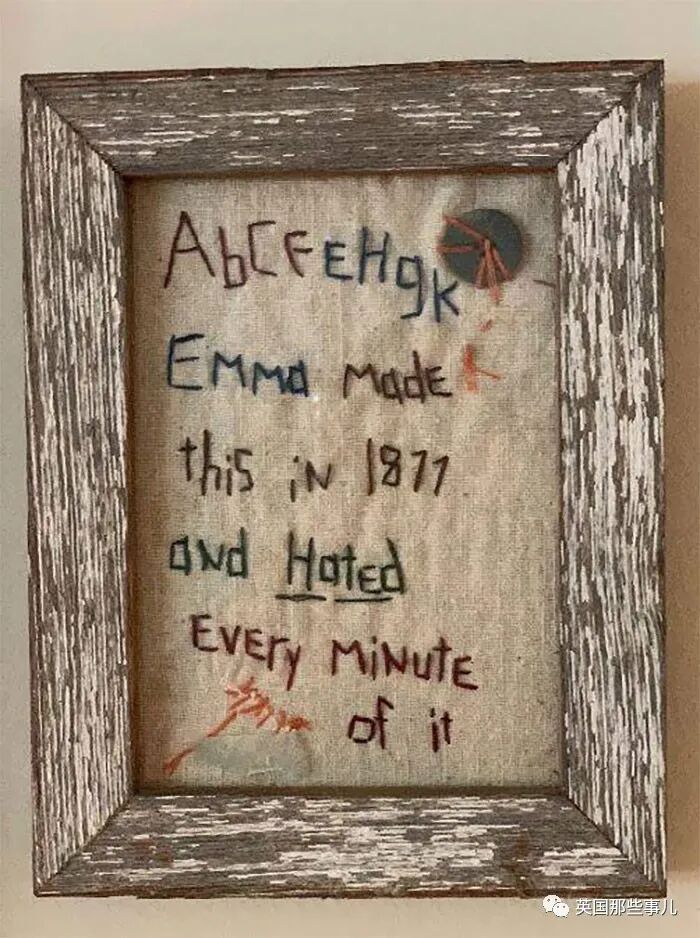 AbCFEHgk
Emma made
this in 1877
and Hated
Every minute
of it
英国那些事儿